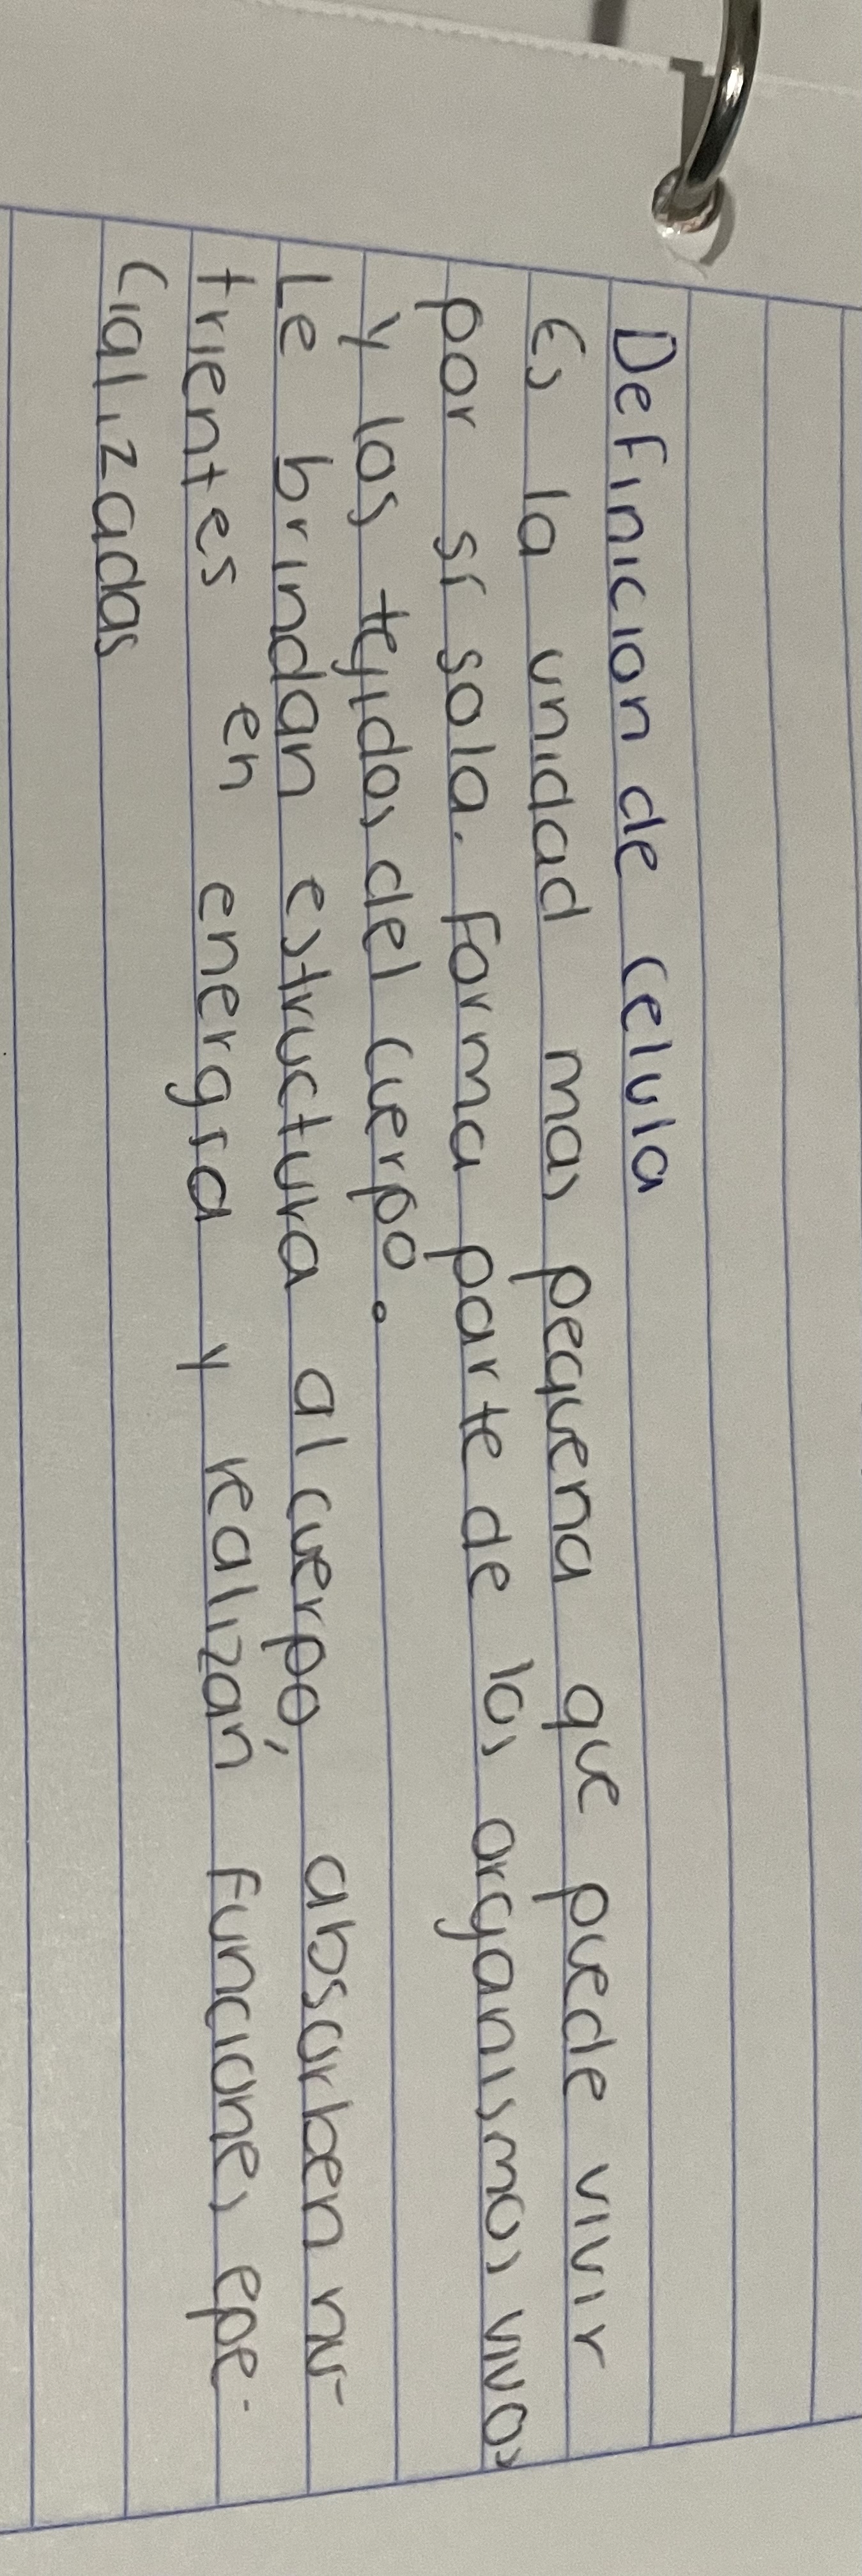 Definicion de celula
Es la unidad mas pequena que puede vivir
por sí sola. Forma parte de los organismos vivos
y los tejidos del cuerpo.
Le brindan estructura al cuerpo, absorben nu-
trientes en energía y realizan funciones epe-
cializadas